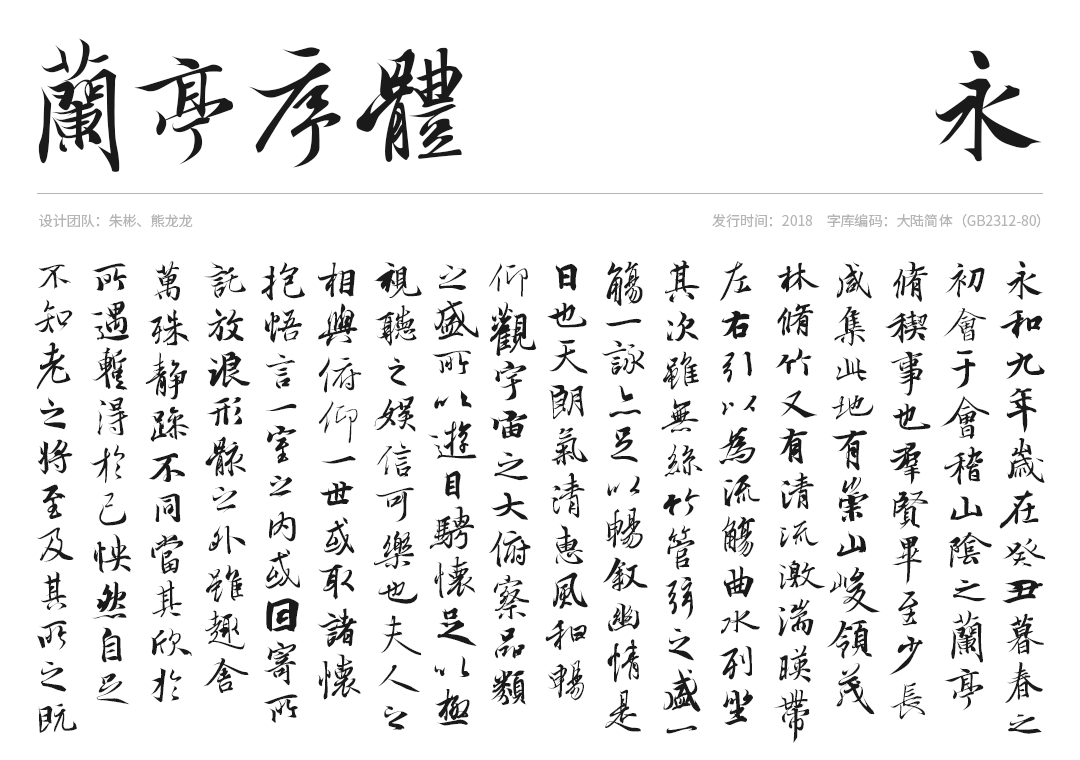 蘭亭序體
永
设计团队：朱彬、熊龙龙
发行时间：2018 字库编码：大陆简体（GB2312-80）
永和九年歲在癸丑暮春之
初會于會稽山陰之蘭亭
脩稧事也羣賢畢至少長
咸集此地有崇山峻領茂
林脩竹又有清流激湍暎帶
左右引以為流觴曲水列坐
其次雖無絲竹管弦之盛一
觴一詠亦足以暢叙幽情是
日也天朗氣清惠風和暢
仰觀宇宙之大俯察品類
之盛所以遊目騁懷足以極
視聽之娛信可樂也夫人之
相與俯仰一世或取諸懷
抱悟言一室之内或因寄所
託放浪形骸之外雖趣舍
萬殊静躁不同當其欣於
所遇暫得於己怏然自足
不知老之將至及其所之既